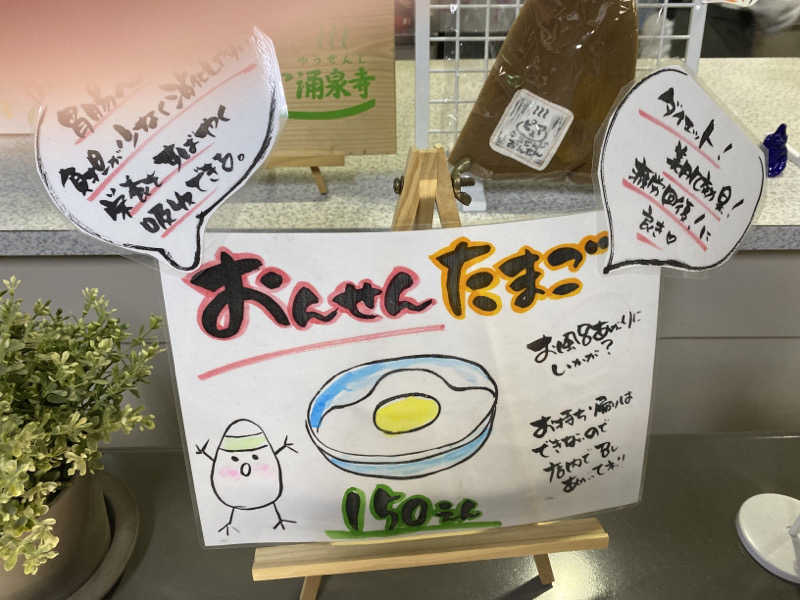 胃腸
消化しやすい
負担が少なく
すばやく
栄養を
吸収できる。
ゆうせんじ
涌泉寺
ダイエット!
美肌効果!
疲労回復!に
良き♡
おんせん たまご
お風呂あがりに
いかが?
お持ち帰りは
できないので
店内でお召し
あがって下さい
150えん